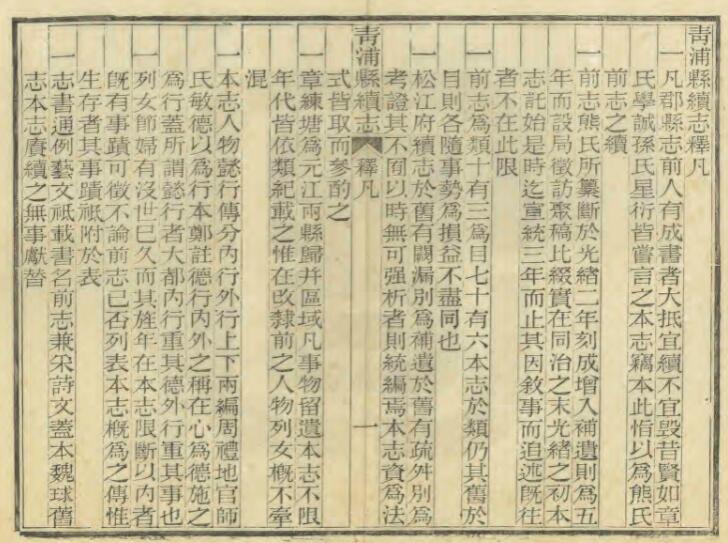 青浦縣續志釋凡
一凡郡縣志前人有成書者大抵宜續不宜毀昔賢如章
氏學誠孫氏星衍皆嘗言之本志竊本此恉以爲熊氏
前志之續
一前志熊氏所纂斷於光緒二年刻成增入補遺則爲五
年而設局徵訪聚稿比綴實在同治之末光緒之初本
志託始是時迄宣統三年而止其因敘事而追述旣往
者不在此限
一前志爲類十有三爲目七十有六本志於類仍其舊於
目則各隨事勢爲損益不盡同也
一松江府續志於舊有闕漏別爲補遺於舊有疏舛別爲
考證其不囿以時無可强析者則統編焉本志資爲法
青浦縣續志 釋凡 一
式皆取而參酌之
一章練塘爲元江兩縣歸并區域凡事物留遺本志不限
年代皆依類紀載之惟在改隸前之人物列女概不牽
混
一本志人物懿行傳分內行外行上下兩編周禮地官師
氏敏德以爲行本鄭註德行內外之稱在心爲德施之
爲行蓋所謂懿行者大都內行重其德外行重其事也
一列女師婦有沒世已久而其旌年在本志限斷以內者
旣有事蹟可徵不論前志已否列表本志概爲之傳惟
生存者其事蹟祗附於表
一志書通例藝文祗載書名前志兼采詩文蓋本魏球舊
志本志賡續之無事獻替